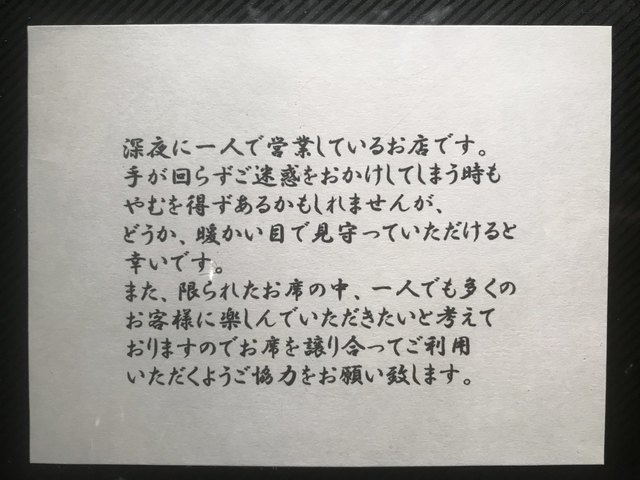 深夜に一人で営業しているお店です。
手が回らずご迷惑をおかけしてしまう時も
やむを得ずあるかもしれませんが、
どうか、暖かい目で見守っていただけると
幸いです。
また、限られたお席の中、一人でも多くの
お客様に楽しんでいただきたいと考えて
おりますのでお席を譲り合ってご利用
いただくようご協力をお願い致します。